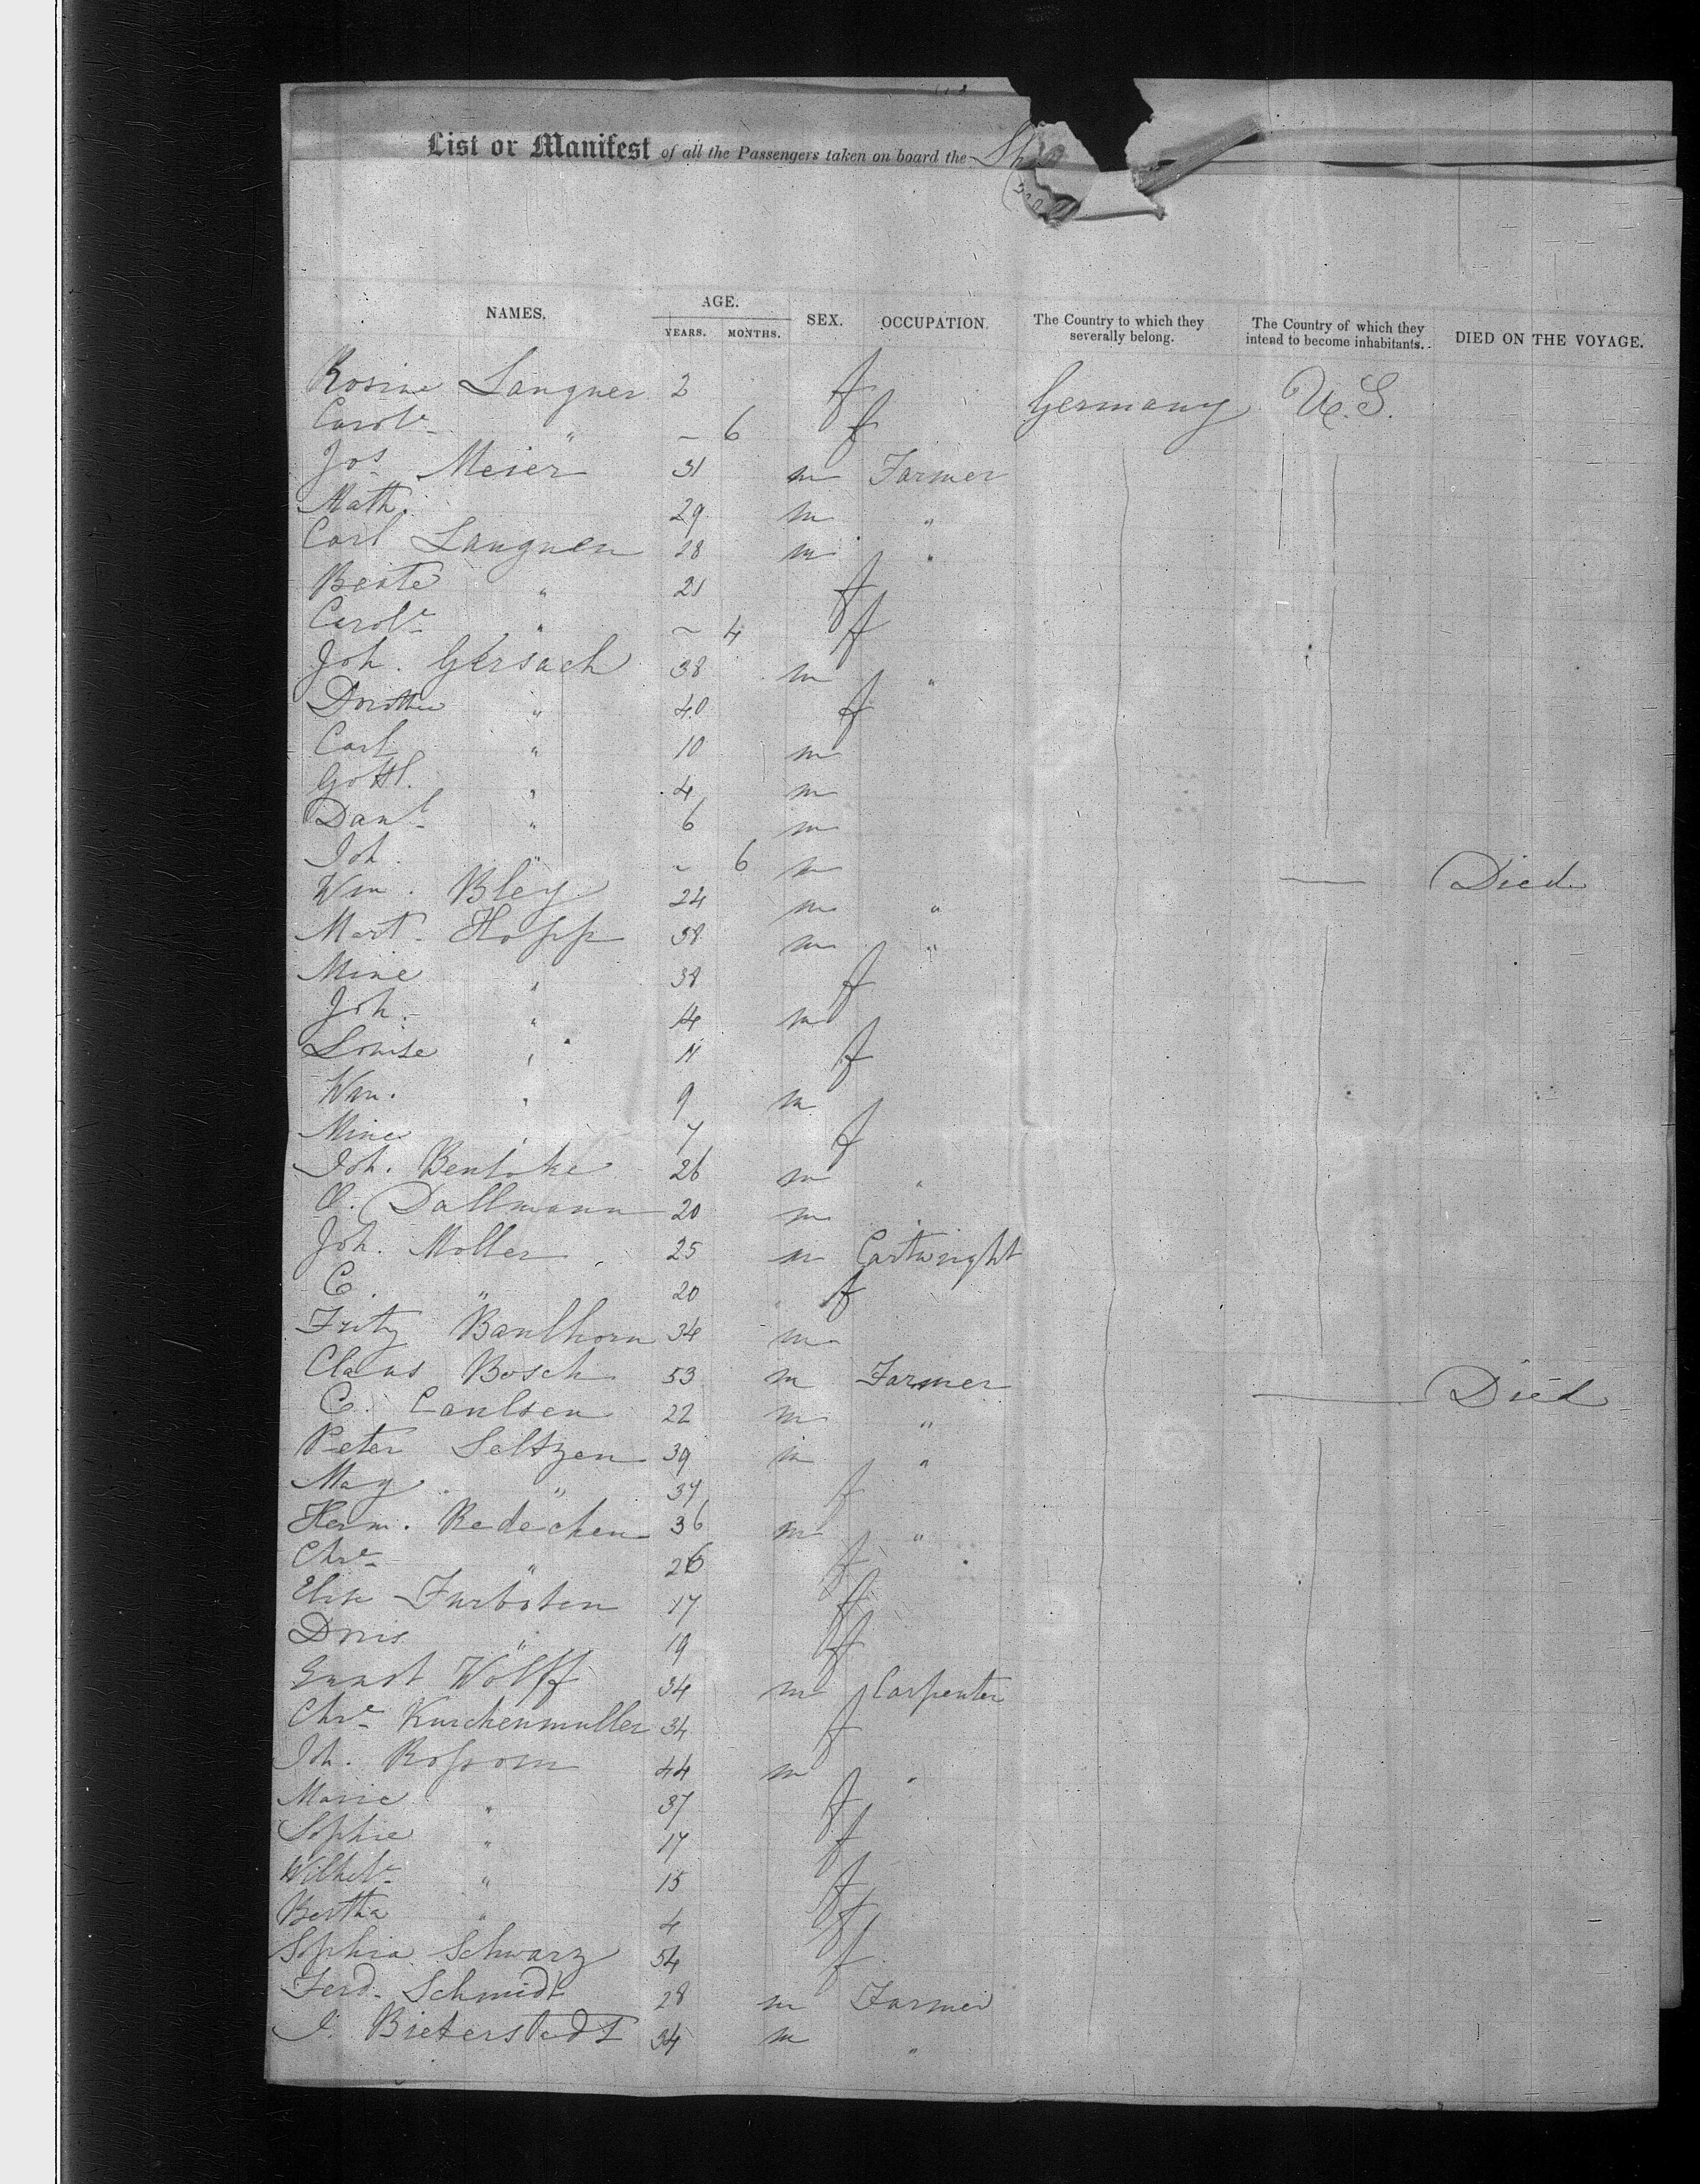 List or Manifest of all the Passengers taken on board the
NAMES. AGE. YEARS. MONTHS. SEX. OCCUPATION. The Country to which they severally belong. The Country of which they intend to become inhabitants. DIED ON THE VOYAGE.
Rosine Langner 2 f Germany U.S.
Carole " – 6 f
Jos Meier 31 m Farmer
Math. 29 m "
Carl Langnen 28 m "
Beate " 21 f
Carole " – 4 f
Joh. Gersach 38 m "
Dorothe " 40 f
Carl " 10 m
Gottl. " 4 m
Danl " 6 m
Joh. " – 6 m — Died
Wm. Bley 24 m "
Mart. Hopp 38 m "
Mine " 38 f
Joh. " 14 m
Louise " 11 f
Wm. " 9 m
Mine " 7 f
Joh. 26 m "
Dallmann 20 m "
Joh. Moller 25 m Cartwright
C. " 20 f
Fritz Banlhorn 34 m
Claus Bosch 53 m Farmer — Died
C. 22 m "
Peter Seltzen 39 m "
Mag. " 39 f
Herm. Redechen 36 m "
Chre " 26 f
Elise 17 f
Doris " 19 f
Ernst Wolff 34 m Carpenter
Chre Kurchenmuller 34 f
Joh. 44 m "
Marie " 37 f
Sophie " 17 f
Wilhele " 15 f
Bertha " 4 f
Sophia Schwarz 54 f
Ferd. Schmidt 28 m Farmer
J. Bieterstedt 34 m "